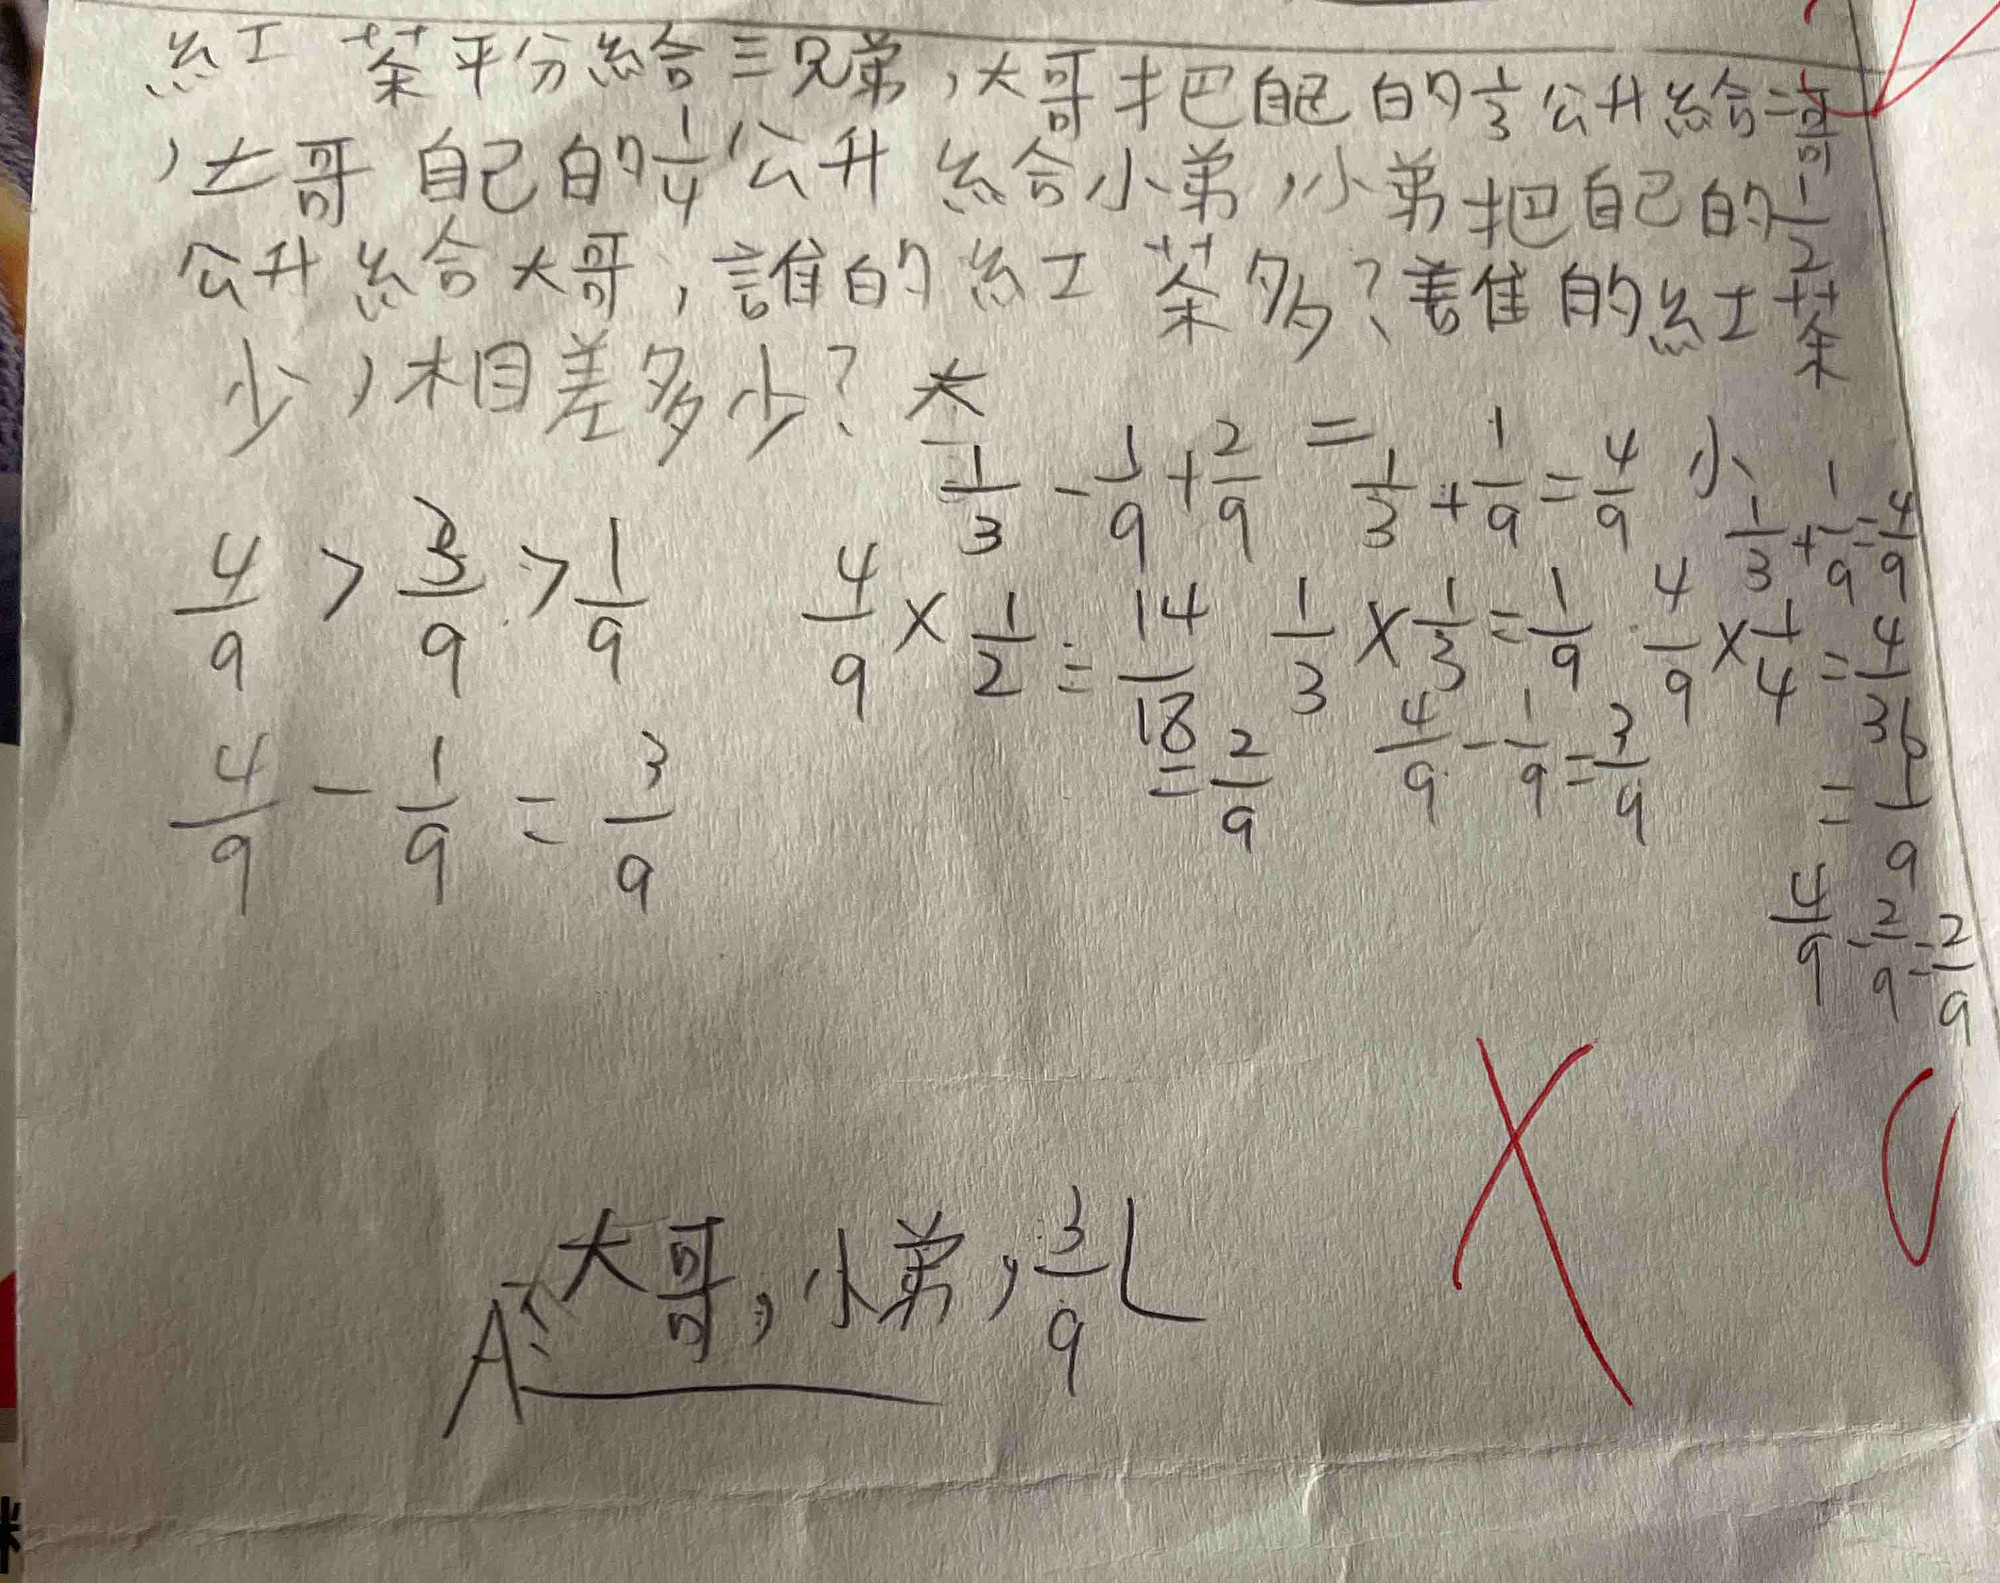 紅茶平分給三兄弟,大哥把自己的1/3公升給二哥
,二哥自己的1/4公升給小弟,小弟把自己的1/2
公升給大哥,誰的紅茶多?誰的紅茶
少,相差多少?
大 1/3 - 1/9 + 2/9
二 1/3 + 1/9 = 4/9
小 1/3 + 1/9 = 4/9
4/9 > 3/9 > 1/9
4/9 × 1/2 = 14/18
= 2/9
1/3 × 1/3 = 1/9
4/9 × 1/4 = 4/36
= 1/9
4/9 - 1/9 = 3/9
4/9 - 1/9 = 3/9
4/9 - 2/9 = 2/9
A: 大哥,小弟,3/9 L